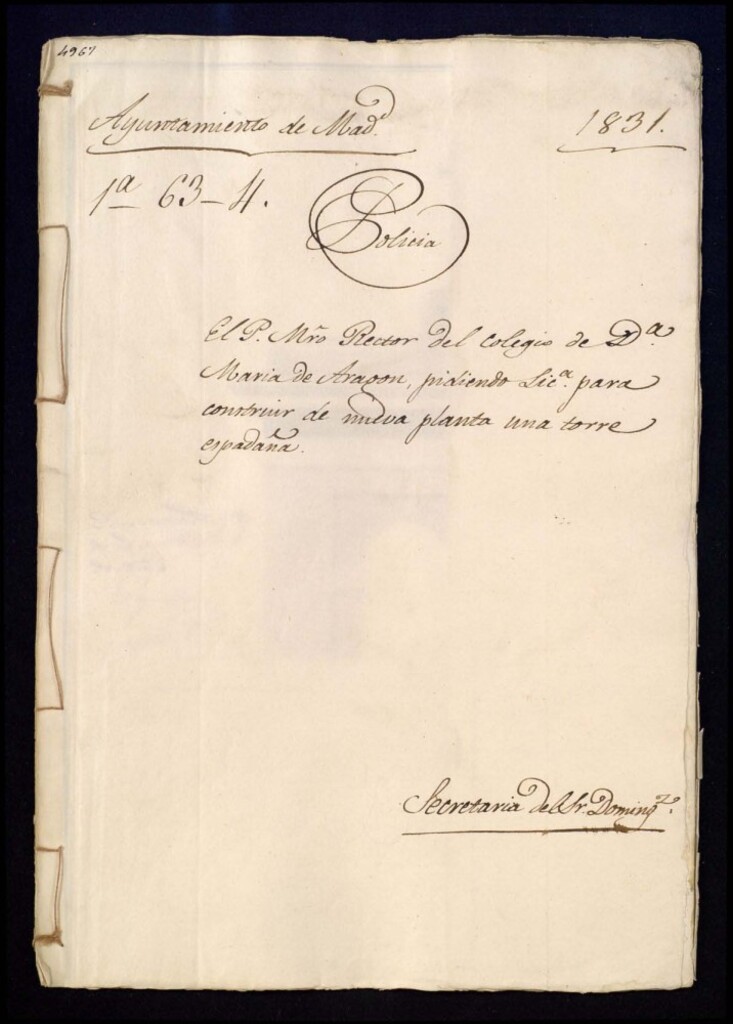 4967
Ayuntamiento de Madd.
1831.
1ª 63-4.
Policia
El P. Mrō Rector del Colegio de Dª.
Maria de Aragon, pidiendo Licª. para
construir de nueva planta una torre
espadaña.
Secretaria del Sr. Domingz.